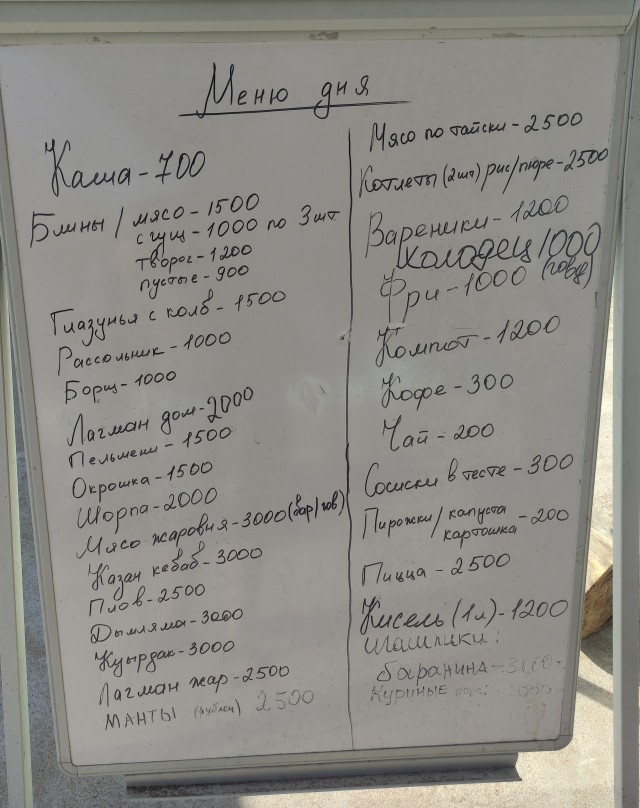 Меню дня
Каша-700
Блины / мясо - 1500
сгущ - 1000 по 3шт
творог - 1200
пустые - 900
Глазунья с колб - 1500
Рассольник - 1000
Борщ - 1000
Лагман дом - 2000
Пельмени - 1500
Окрошка - 1500
Шорпа - 2000
Мясо жаровня - 3000 (бар/гов)
Казан кебаб - 3000
Плов - 2500
Дымляма - 3000
Куырдак - 3000
Лагман жар - 2500
МАНТЫ 2500
Мясо по тайски - 2500
Котлеты (2шт) рис/пюре - 2500
Вареники - 1200
Холодец 1000
Фри - 1000 (говд)
Компот - 1200
Кофе - 300
Чай - 200
Сосиски в тесте - 300
Пирожки / капуста
картошка - 200
Пицца - 2500
Кисель (1л) - 1200
Шашлики:
баранина -
Куриные